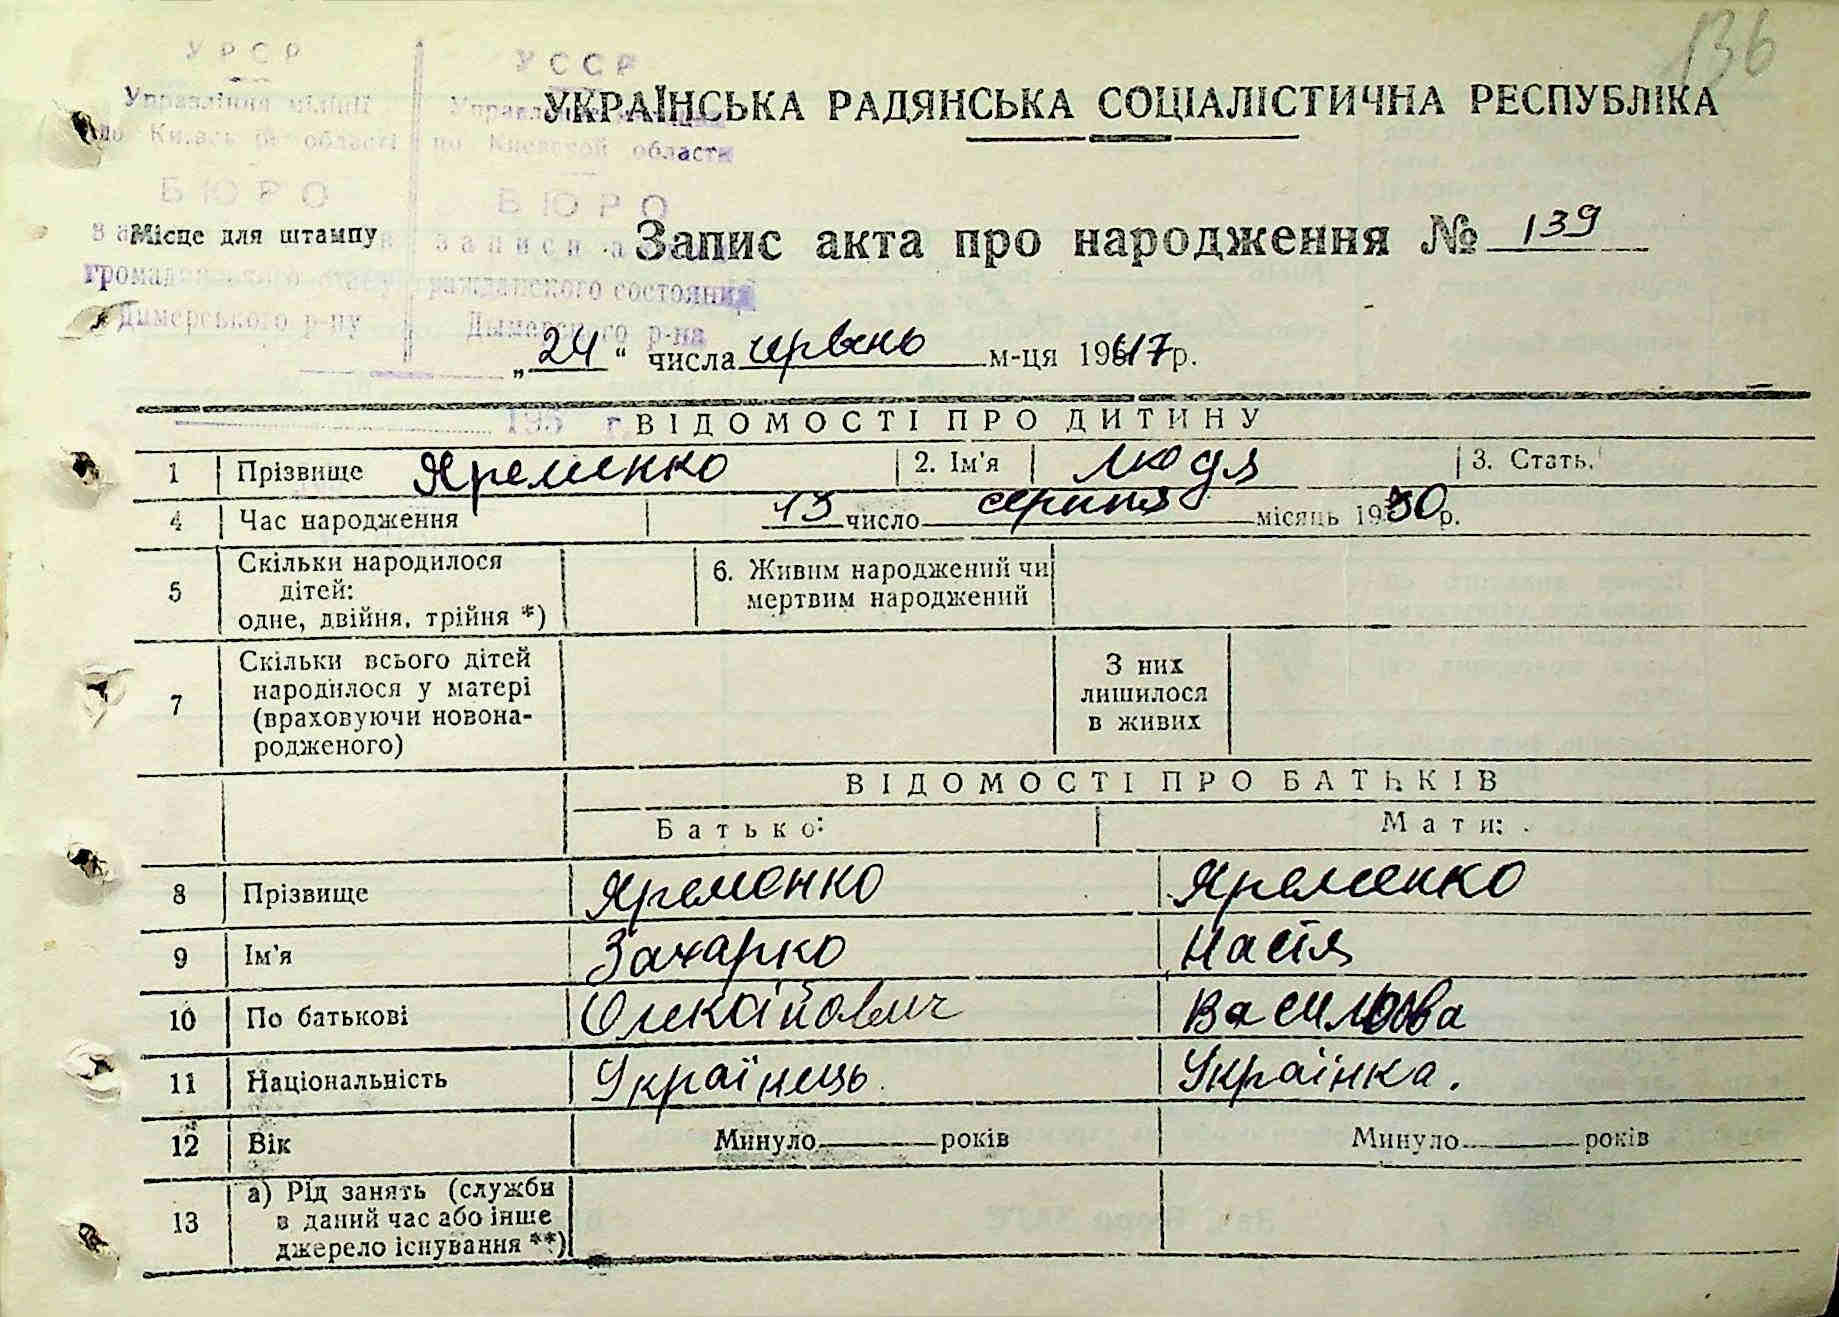 136
УРСР УССР
Управління міліції Управление
по Київській області по Киевской области
УКРАЇНСЬКА РАДЯНСЬКА СОЦІАЛІСТИЧНА РЕСПУБЛІКА
БЮРО БЮРО
Місце для штампу записи
Запис акта про народження № 139
громадянського стану гражданского состояния
Димерського р-ну Дымерского р-на
„24“ числа червень м-ця 1947 р.
195 г.
ВІДОМОСТІ ПРО ДИТИНУ
1 Прізвище Яременко 2. Ім'я Людя 3. Стать.
4 Час народження 13 число серпня місяць 1930 р.
5 Скільки народилося дітей: одне, двійня, трійня *) 6. Живим народжений чи мертвим народжений
7 Скільки всього дітей народилося у матері (враховуючи новонародженого) З них лишилося в живих
ВІДОМОСТІ ПРО БАТЬКІВ
Батько: Мати:
8 Прізвище Яременко Яременко
9 Ім'я Захарко Настя
10 По батькові Олексійович Василівва
11 Національність Українець. Українка.
12 Вік Минуло років Минуло років
13 а) Рід занять (служби в даний час або інше джерело існування **)